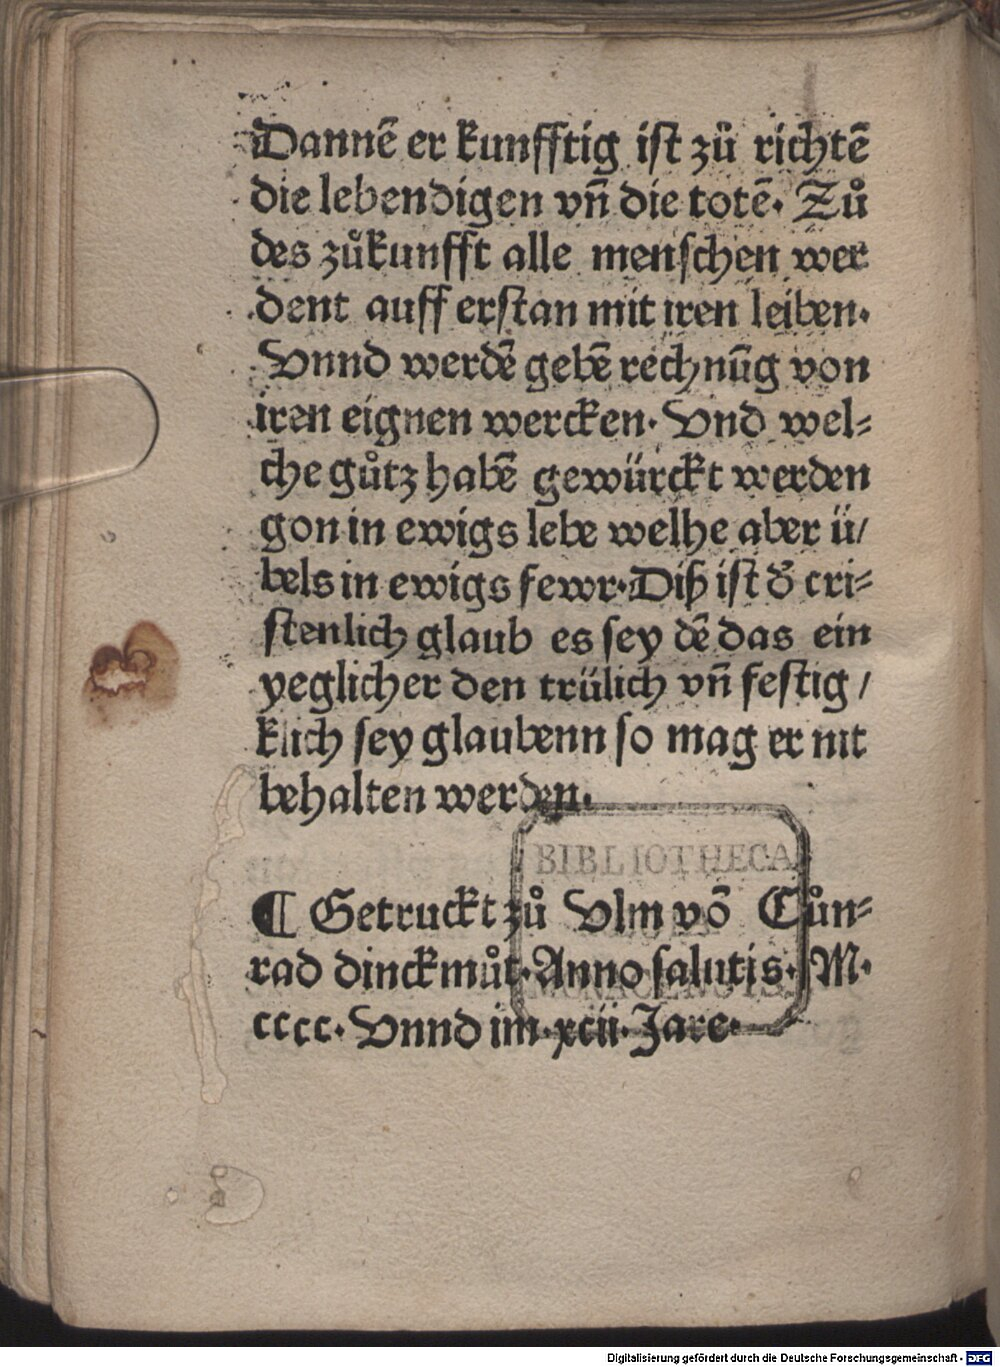 Dannē er kunfftig ist zů richtē
die lebendigen vn̄ die totē. Zů
des zůkunfft alle menschen wer
dent auff erstan mit iren leiben.
Vnnd werdē gebē rechnūg von
iren eignen wercken. Vnd wel⸗
che gůtz habē gewürckt werden
gon in ewigs lebe welhe aber ü/
bels in ewigs fewr. Diß ist d̄ cri⸗
stenlich glaub es sey dē das ein
yeglicher den trülich vn̄ festig /
klich sey glaubenn so mag er nit
behalten werden.
BIBLIOTHECA
¶ Getruckt zů Vlm vō Cůn⸗
rad dinckmůt. Anno salutis. M.
MONACENSIS
cccc. Vnnd im .xcii. Jare.
Digitalisierung gefördert durch die Deutsche Forschungsgemeinschaft - DFG